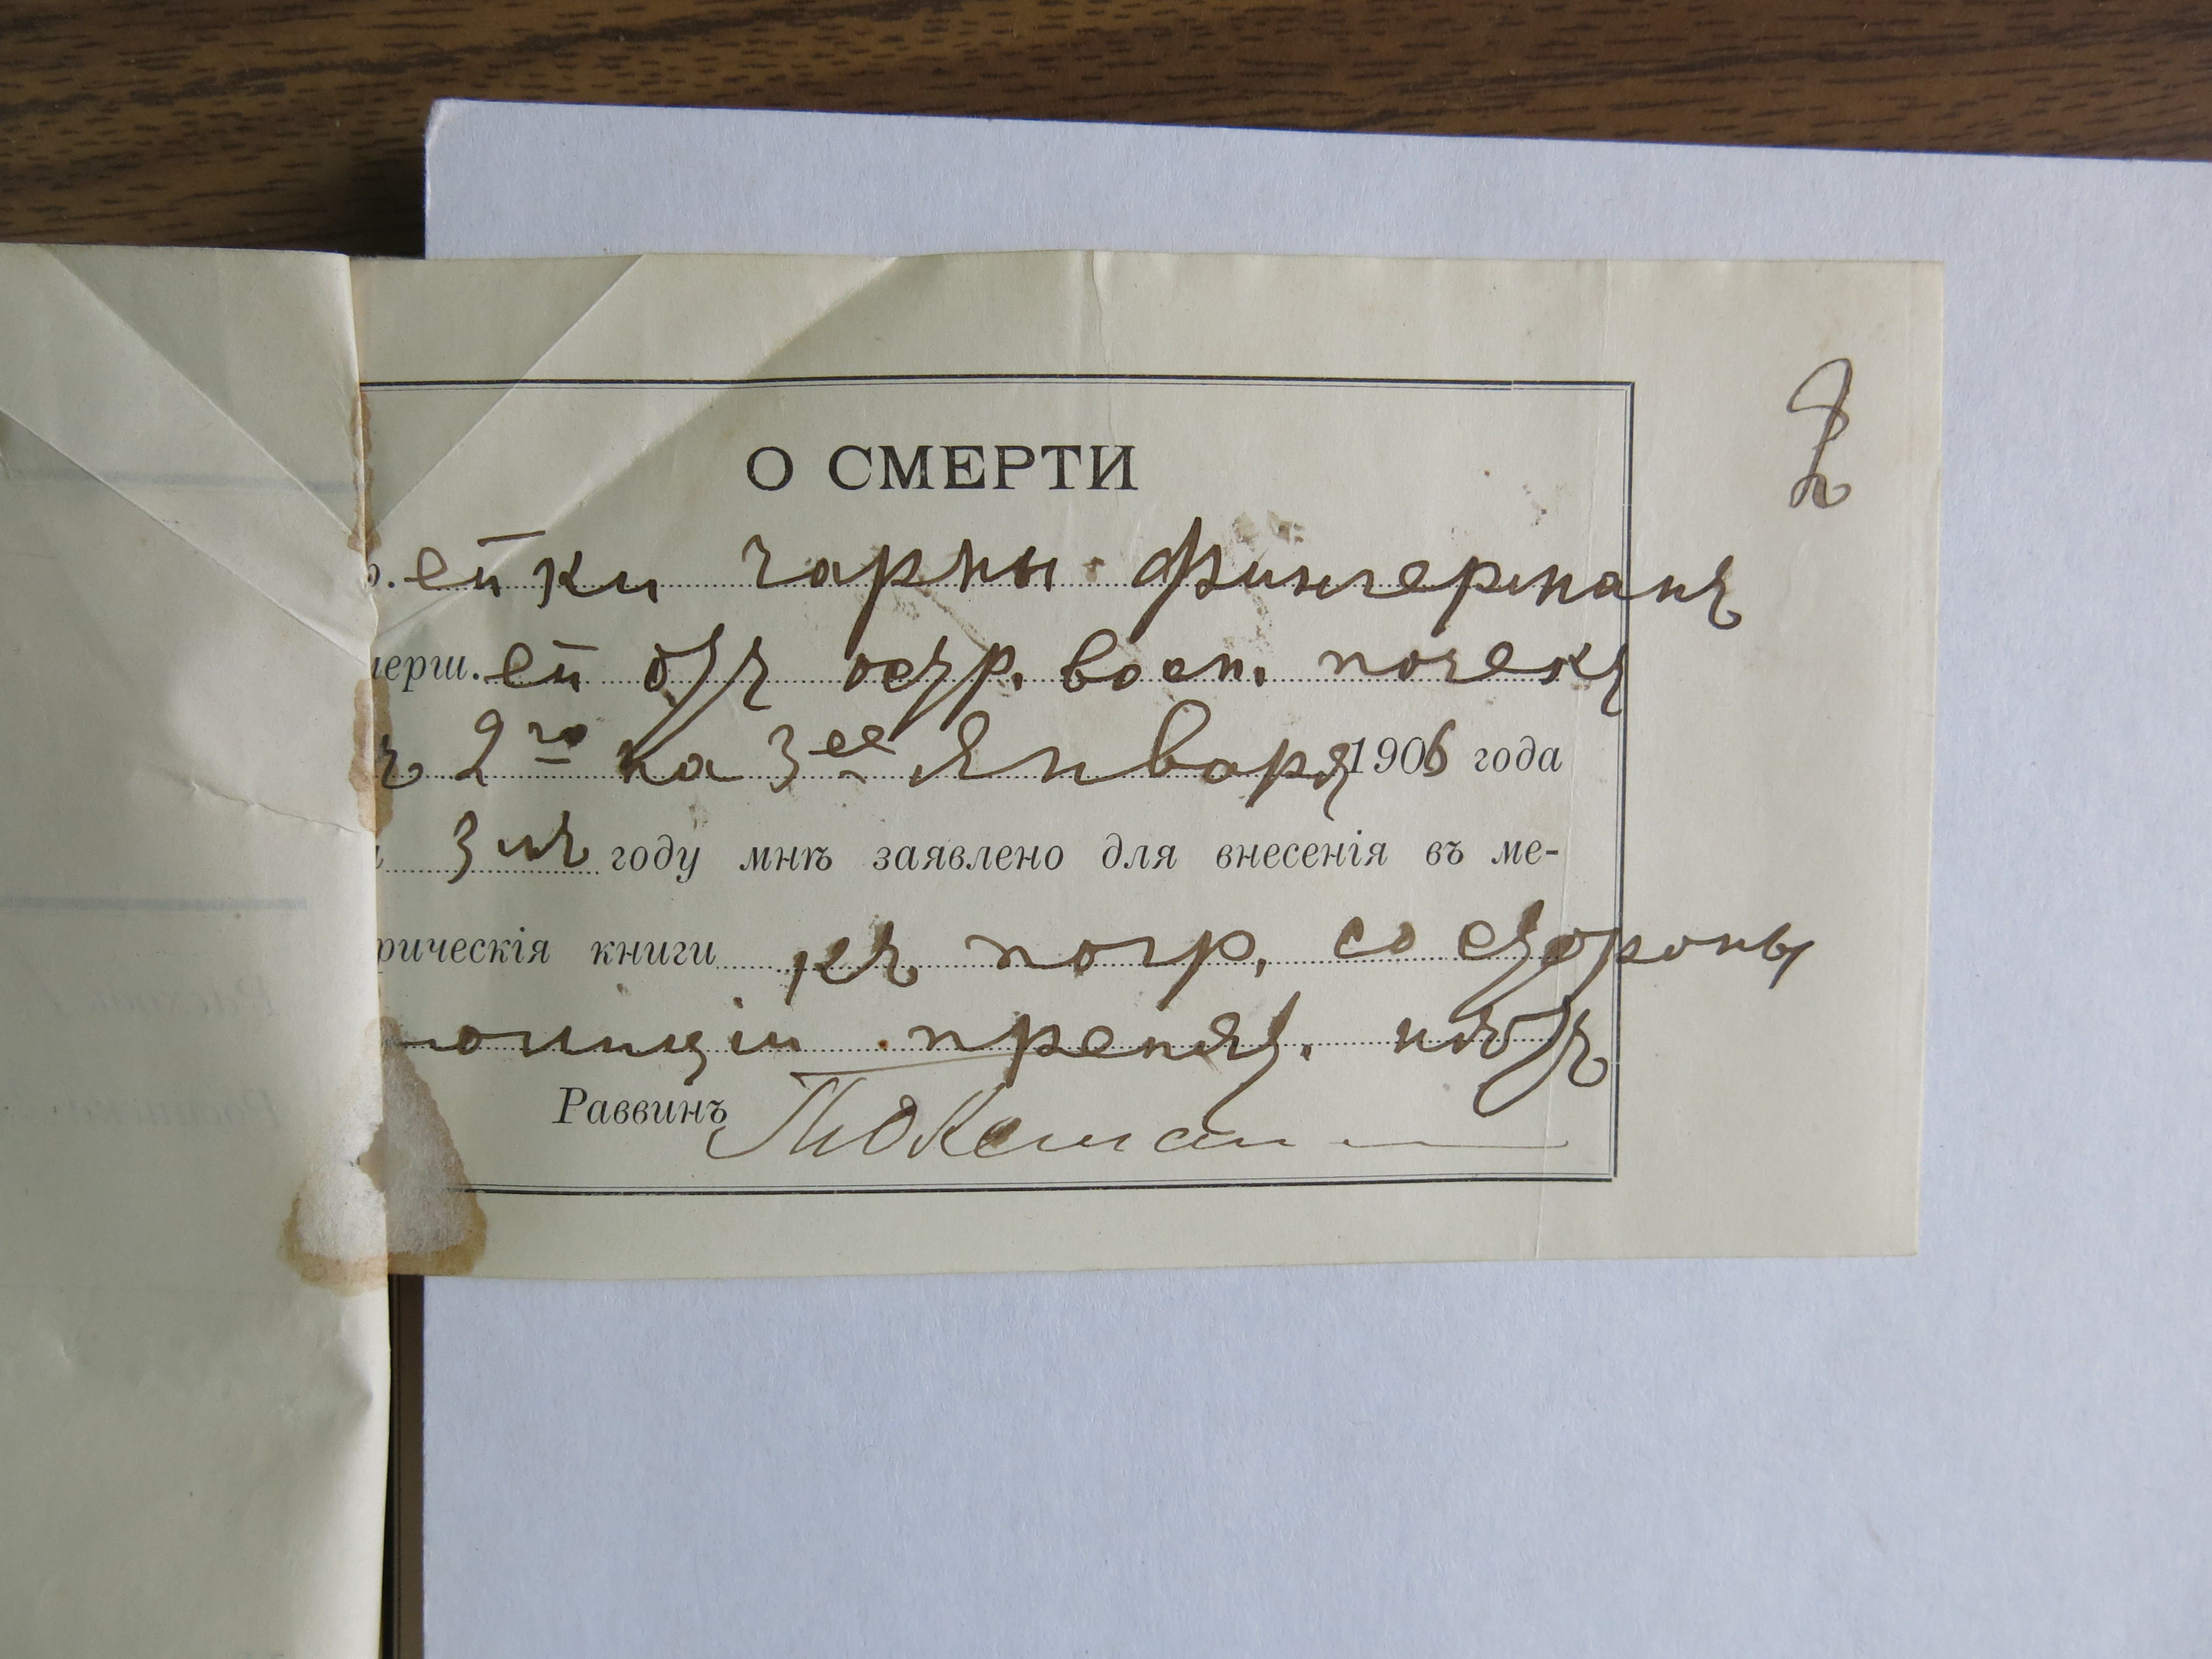 2
О СМЕРТИ
р. ейки Чарны Фингерманъ
мерш. ей отъ остр. восп. почекъ
ъ 2го на 3ее Января 1906 года
3мъ году мнѣ заявлено для внесенія въ ме-
рическія книги къ погр. со стороны
полиціи препят. нѣтъ
Раввинъ